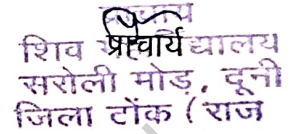 प्राचार्य
शिव द्यालय
सरोली मोड़, दूनी
जिला टोंक (राज